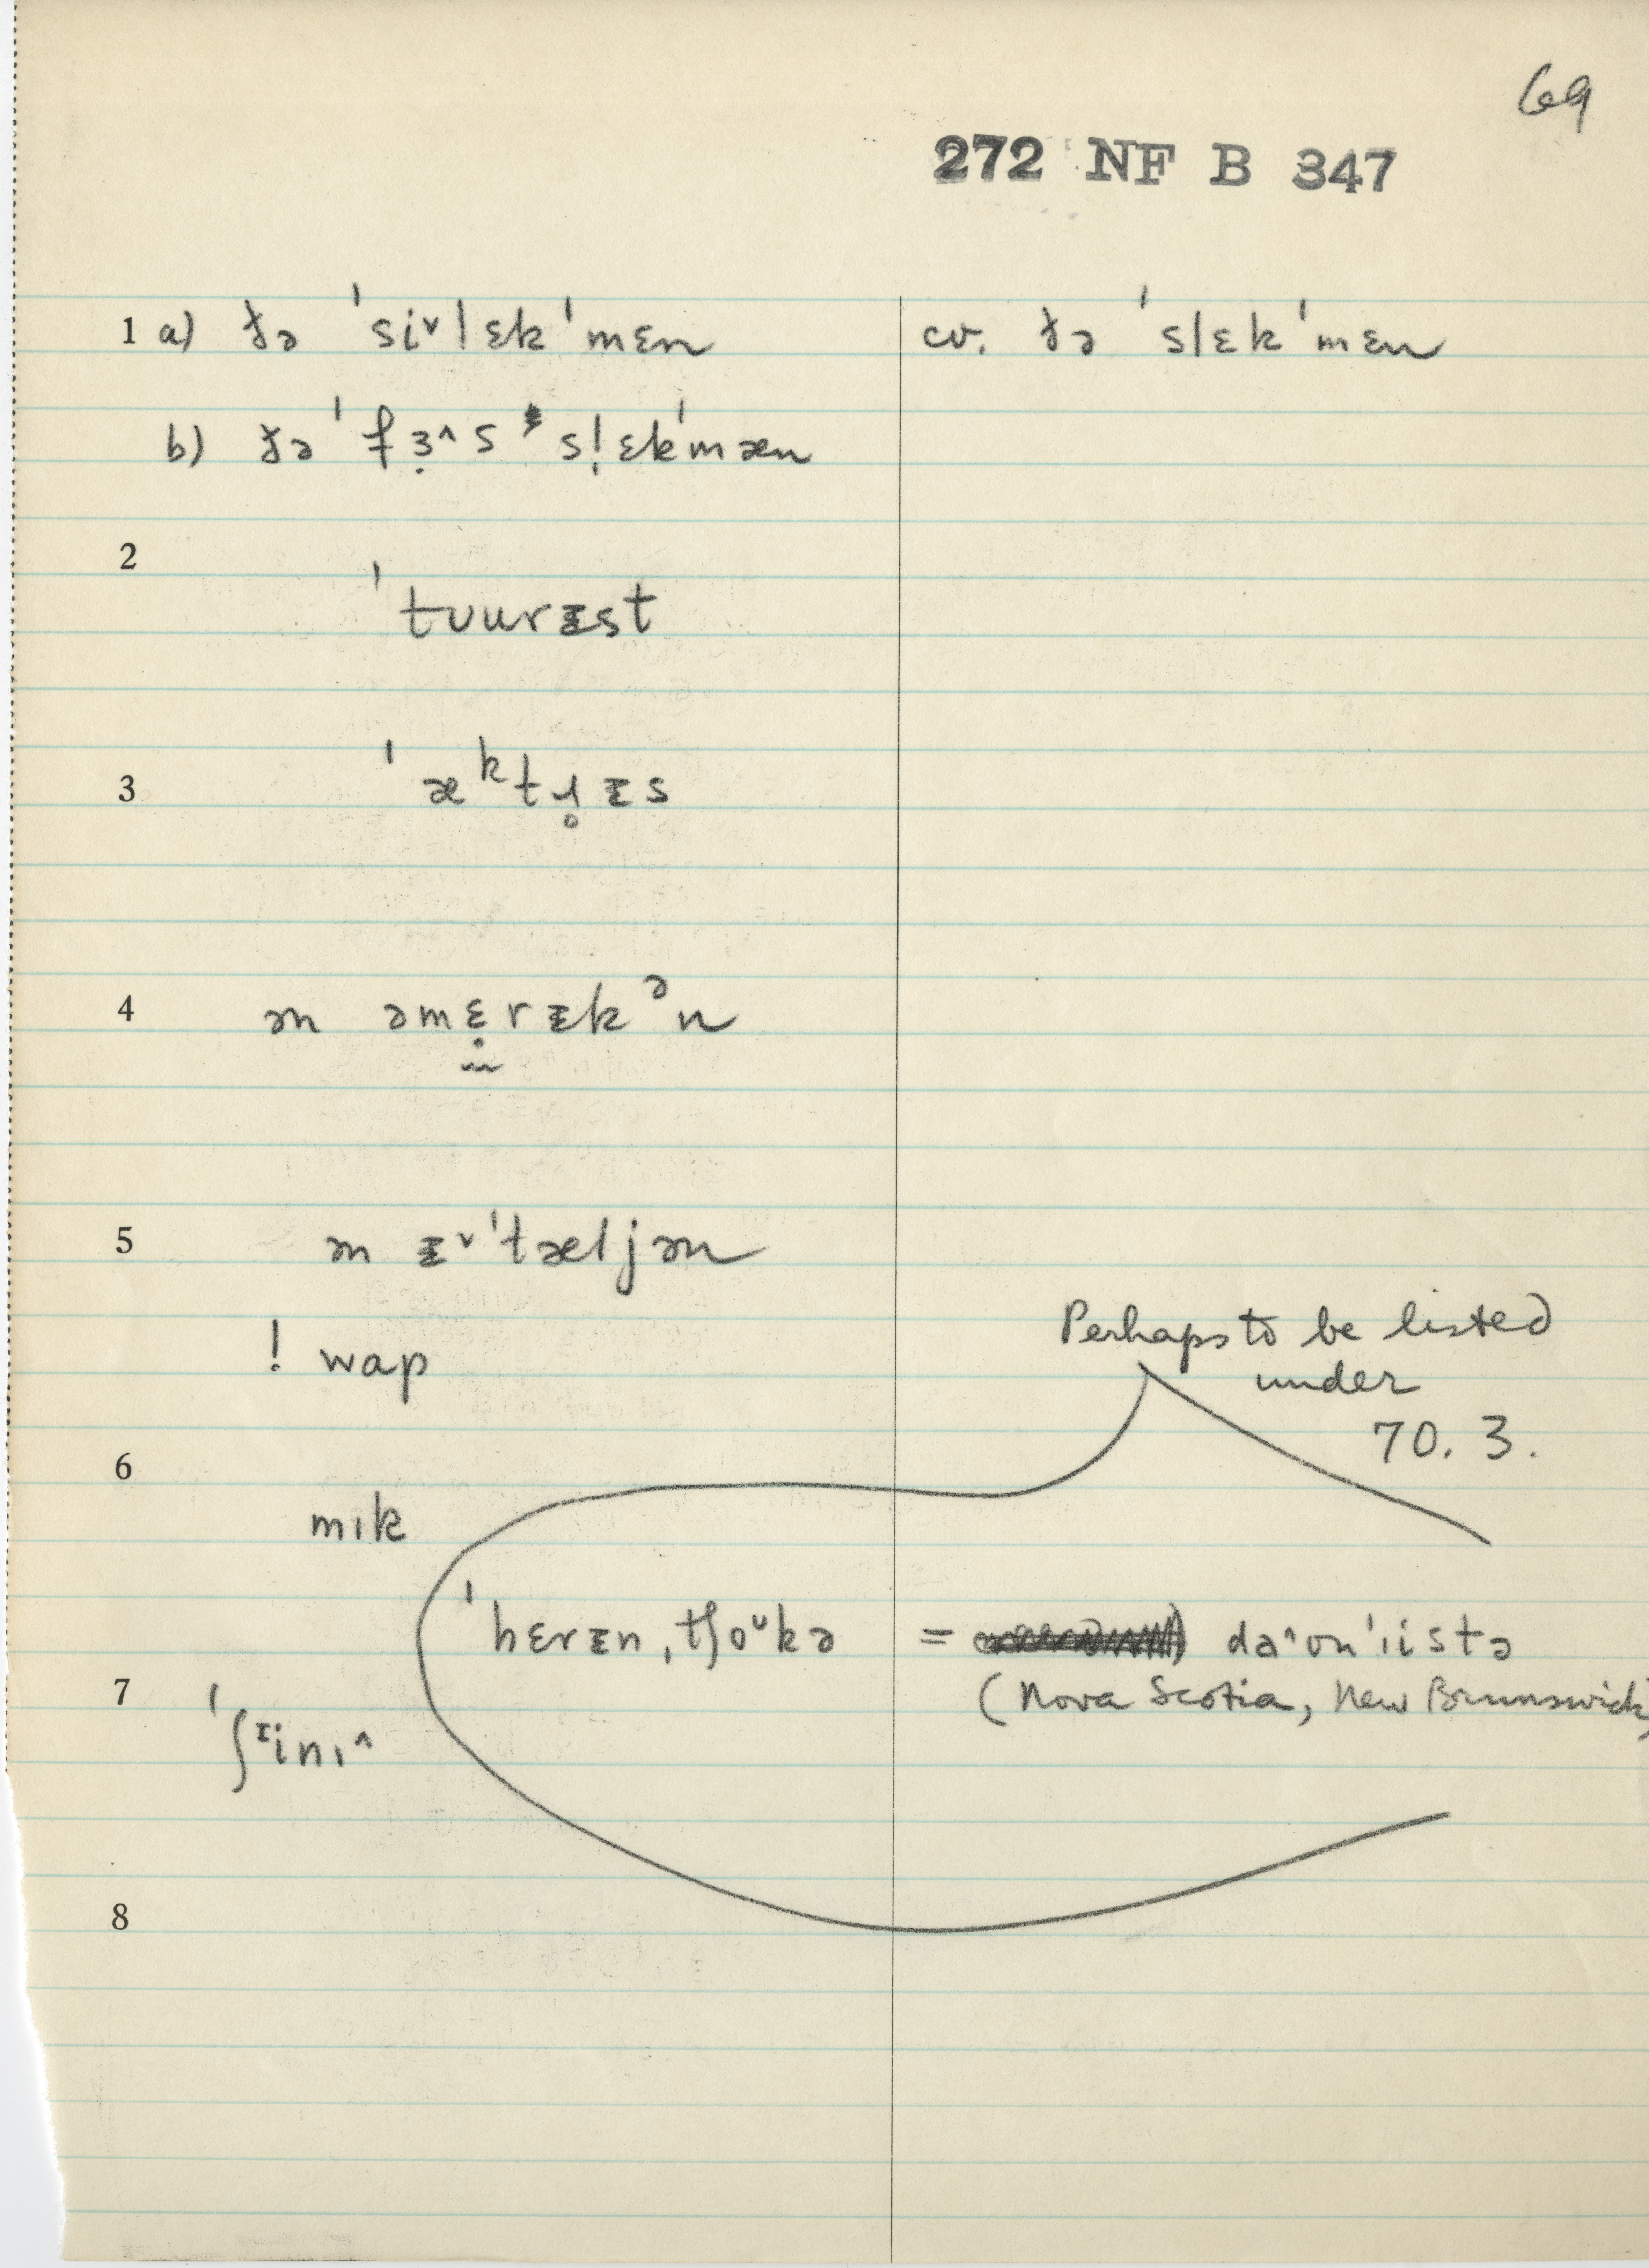 69
272 NF B 347
1 a) ðə ˈsi˅lɛkˈmɛn cv. ðə ˈslɛkˈmɛn
b) ðə ˈfɜ̣˄s sl̩ɛkˈmæn
2
ˈtʊurɪ̵st
3 ˈæᵏtɹ̥ɪ̵s
4 ən əmɛ̣rɪ̵kᵊn
5 ən ɪ̵˅ˈtæljən
! wap
Perhaps to be listed
under
70. 3.
6
mɪk
ˈhɛrɪ̵n ˌtʃoᶷkə = də˄ʊnˈɪistə
7 (Nova Scotia, New Brunswick)
ˈʃᶦinɪ˄
8